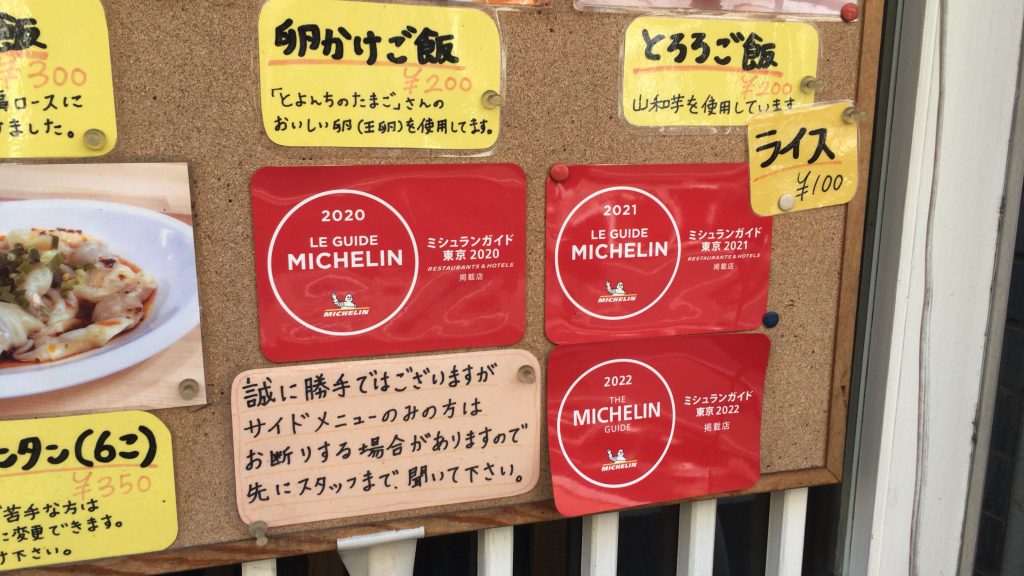 飯
¥300
肩ロースに
けました。
卵かけご飯
¥200
「とよんちのたまご」さんの
おいしい卵(王卵)を使用してます。
とろろご飯
¥200
山和芋を使用しています
ライス
¥100
2020
LE GUIDE
MICHELIN
MICHELIN
ミシュランガイド
東京 2020
RESTAURANTS & HOTELS
掲載店
2021
LE GUIDE
MICHELIN
MICHELIN
ミシュランガイド
東京 2021
RESTAURANTS & HOTELS
掲載店
誠に勝手ではございますが
サイドメニューのみの方は
お断りする場合がありますので
先にスタッフまで聞いて下さい。
2022
THE
MICHELIN
GUIDE
MICHELIN
ミシュランガイド
東京 2022
掲載店
ンタン(6コ)
¥350
苦手な方は
に変更できます。
け下さい。